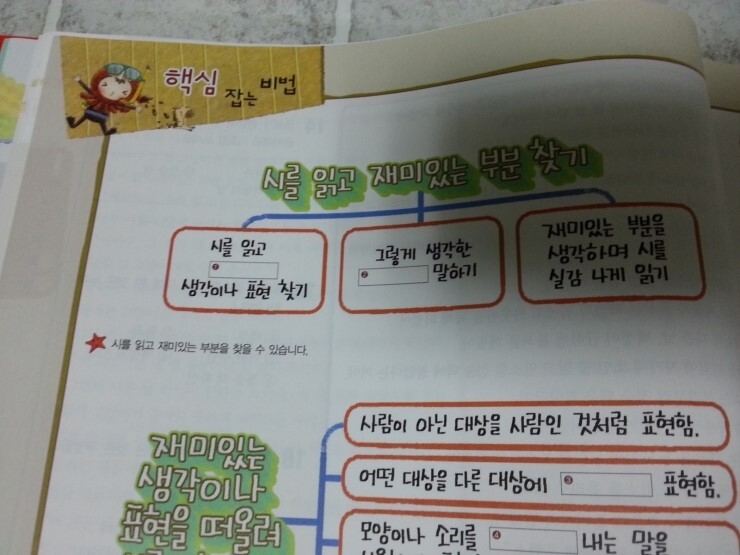 핵심 잡는 비법
시를 읽고 재미있는 부분 찾기
시를 읽고
❶
생각이나 표현 찾기
그렇게 생각한
❷ 말하기
재미있는 부분을
생각하며 시를
실감 나게 읽기
시를 읽고 재미있는 부분을 찾을 수 있습니다.
재미있는
생각이나
표현을 떠올려
사람이 아닌 대상을 사람인 것처럼 표현함.
어떤 대상을 다른 대상에 ❸ 표현함.
모양이나 소리를 ❹ 내는 말을